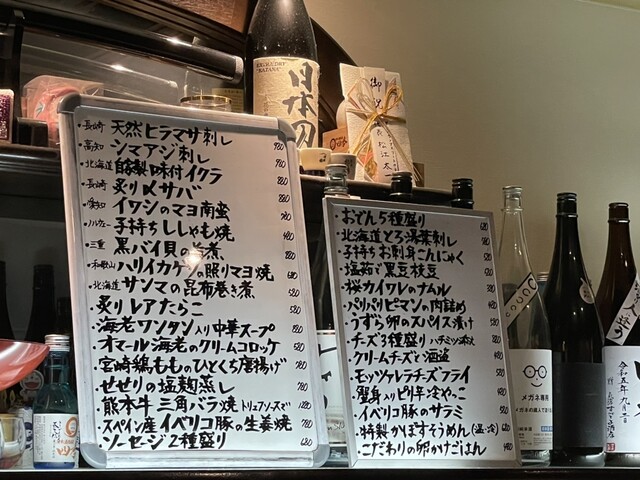 ・長崎 天然ヒラマサ刺し
・高知 シマアジ刺し
・北海道 自家製口味付イクラ
・長崎 炙り〆サバ
・愛知 イワシのマヨ南蛮
・ノルウェー 子持ちししゃも焼
・三重 黒バイ貝の
・和歌山 ハリイカゲソの照りマヨ焼
・北海道 サンマの昆布巻き煮
・炙りレアたらこ
・海老ワンタン入り中華スープ
・オマール海老のクリームコロッケ
・宮崎鶏もものひとくち唐揚げ
・せせりの塩麹蒸し
・熊本牛 三角バラ焼 トリュフソースで
・スペイン産イベリコ豚の生姜焼
・ソーセージ2種盛り
・おでん5種盛り
・北海道とろ湯葉刺し
・子持ちお刺身こんにゃく
・塩茹で黒豆枝豆
・桜カイワレのナムル
・パリパリピーマンの肉詰め
・うずら卵のスパイス漬け
・チーズ3種盛り ハチミツ添え
・クリームチーズと酒盗
・モッツァレラチーズフライ
・蟹身入りピリ辛冷やっこ
・イベリコ豚のサラミ
・特製かぼすそうめん(温・冷)
・こだわりの卵かけごはん
EXTRA DRY
"KATANA"
日本刀
御
松江
メガネ専用
令和五年九月